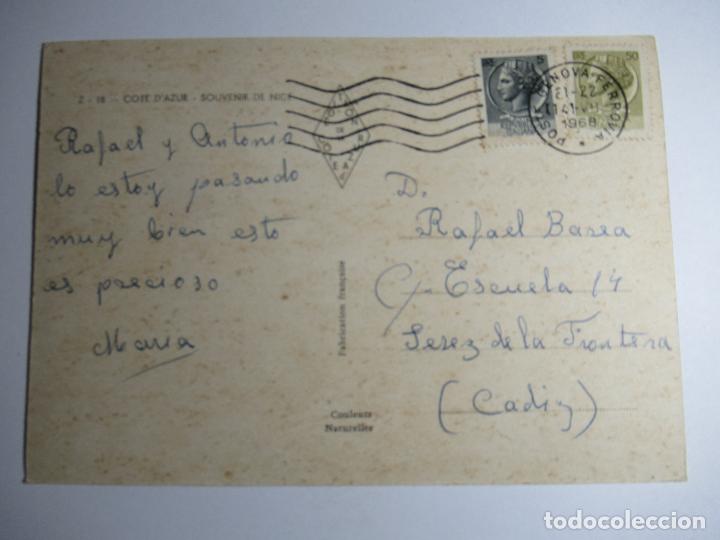 2 - 18 - COTE D'AZUR - SOUVENIR DE NICE
Rafael y Antonia
lo estoy pasando
muy bien esto
es precioso
Maria
Fabrication française
Couleurs
Naturelles
5
50
GENOVA-FERROVIA
21-22
1968
D.
Rafael Basea
C/. Escuela 14
Jerez de la Frontera
(Cadiz)
todocoleccion